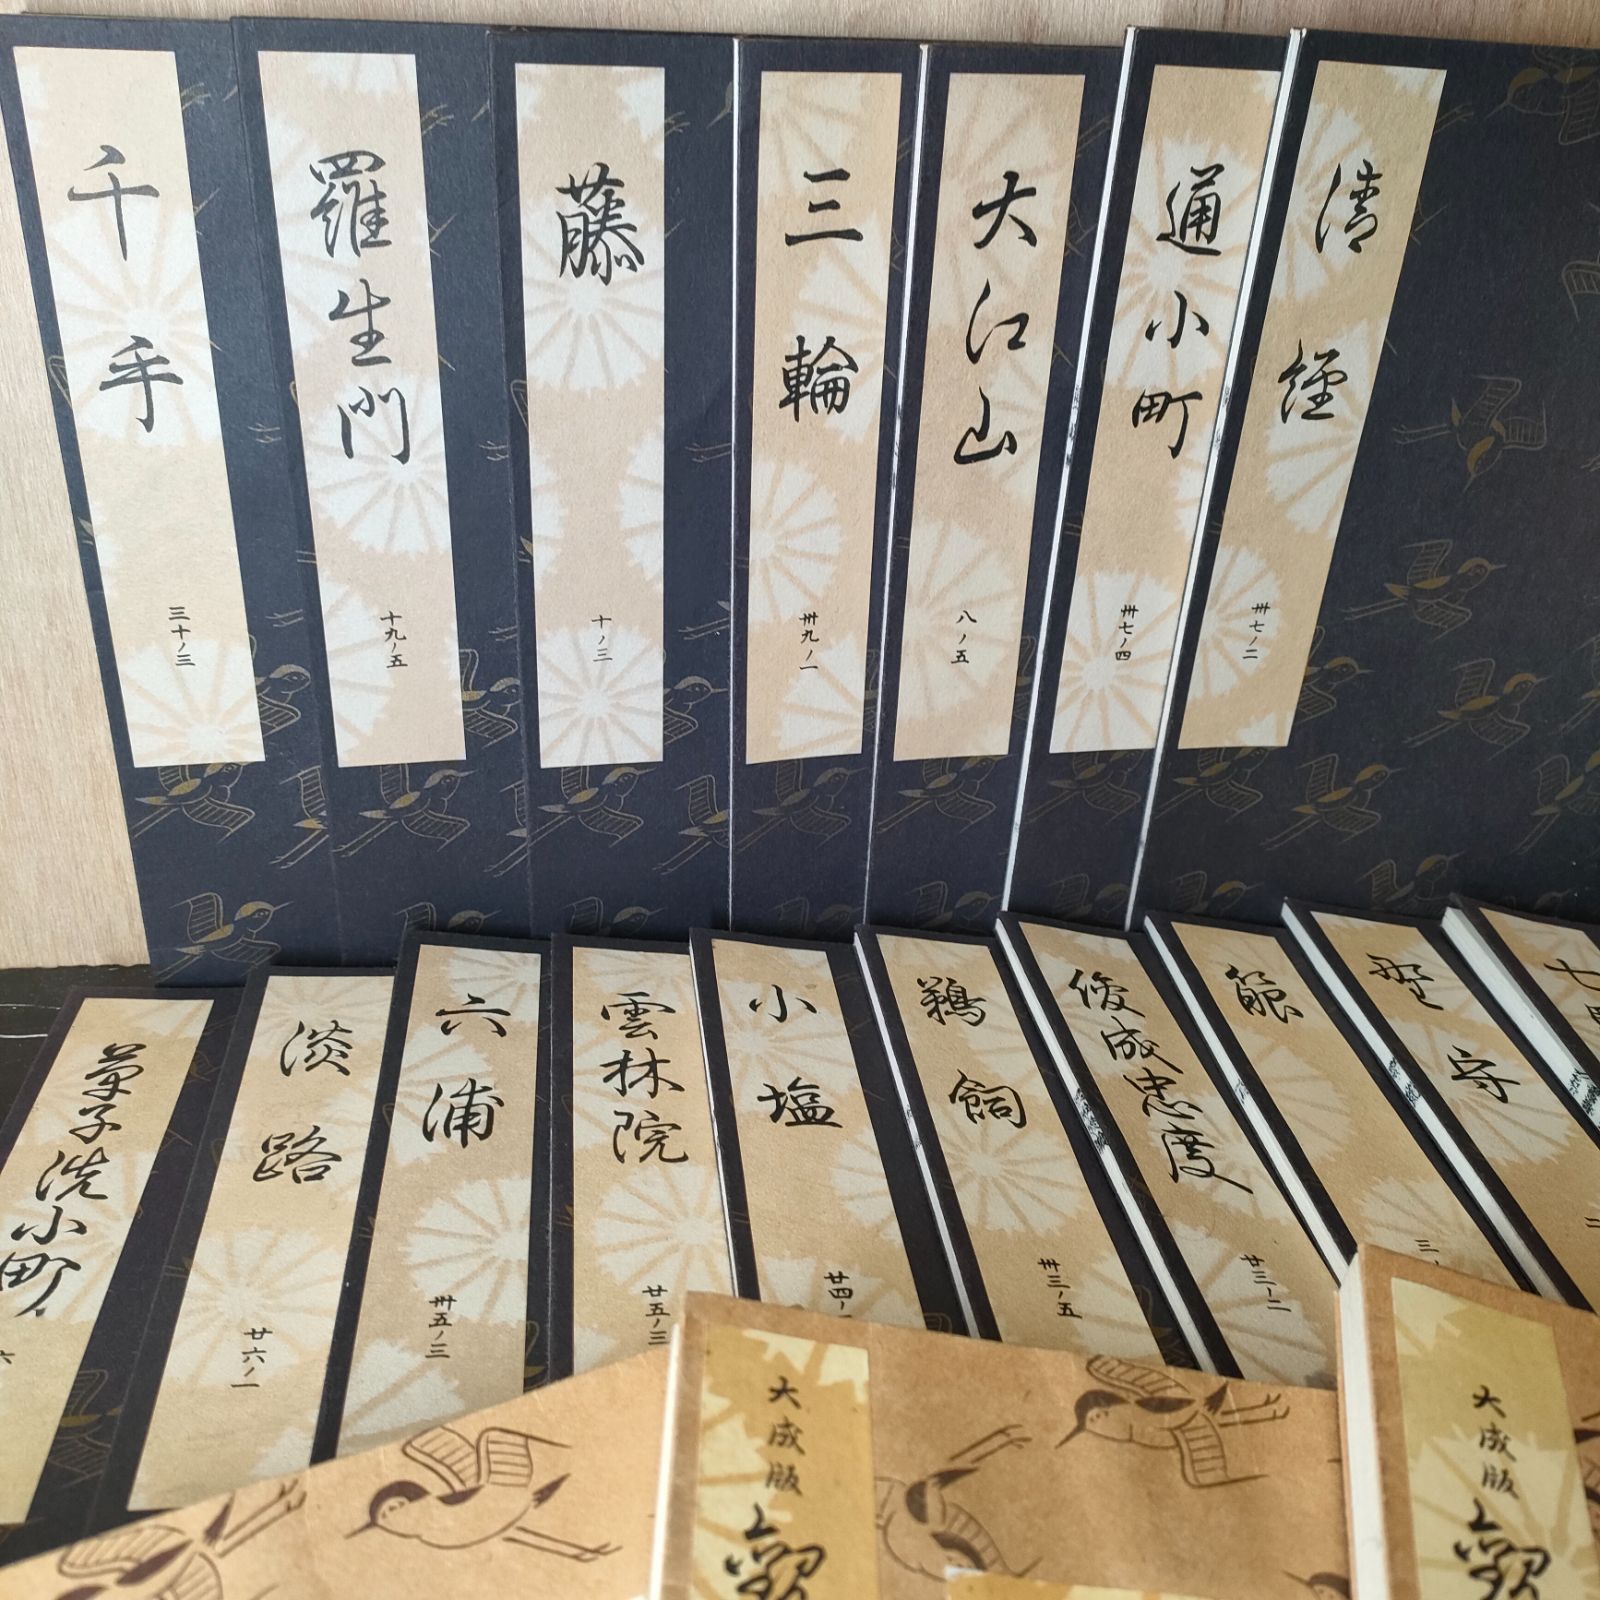 千手
三十ノ三
羅生門
十九ノ五
藤
十ノ三
三輪
卅九ノ一
大江山
八ノ五
通小町
卅七ノ四
清経
卅七ノ二
草子洗小町
六
淡路
廿六ノ一
六浦
卅五ノ二
雲林院
廿五ノ三
小塩
廿四ノ
鵜飼
卅三ノ五
俊成忠度
廿三ノ二
箙
三ノ
野守
二
七騎
大成版
観
大成版
観